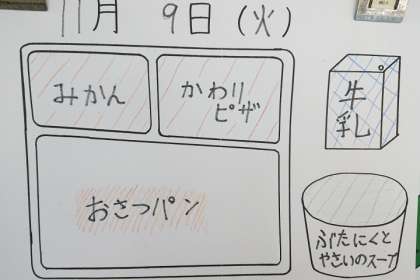 11月 9日(火)
みかん
かわり
ピザ
牛
乳
おさつパン
ぶたにくと
やさいのスープ